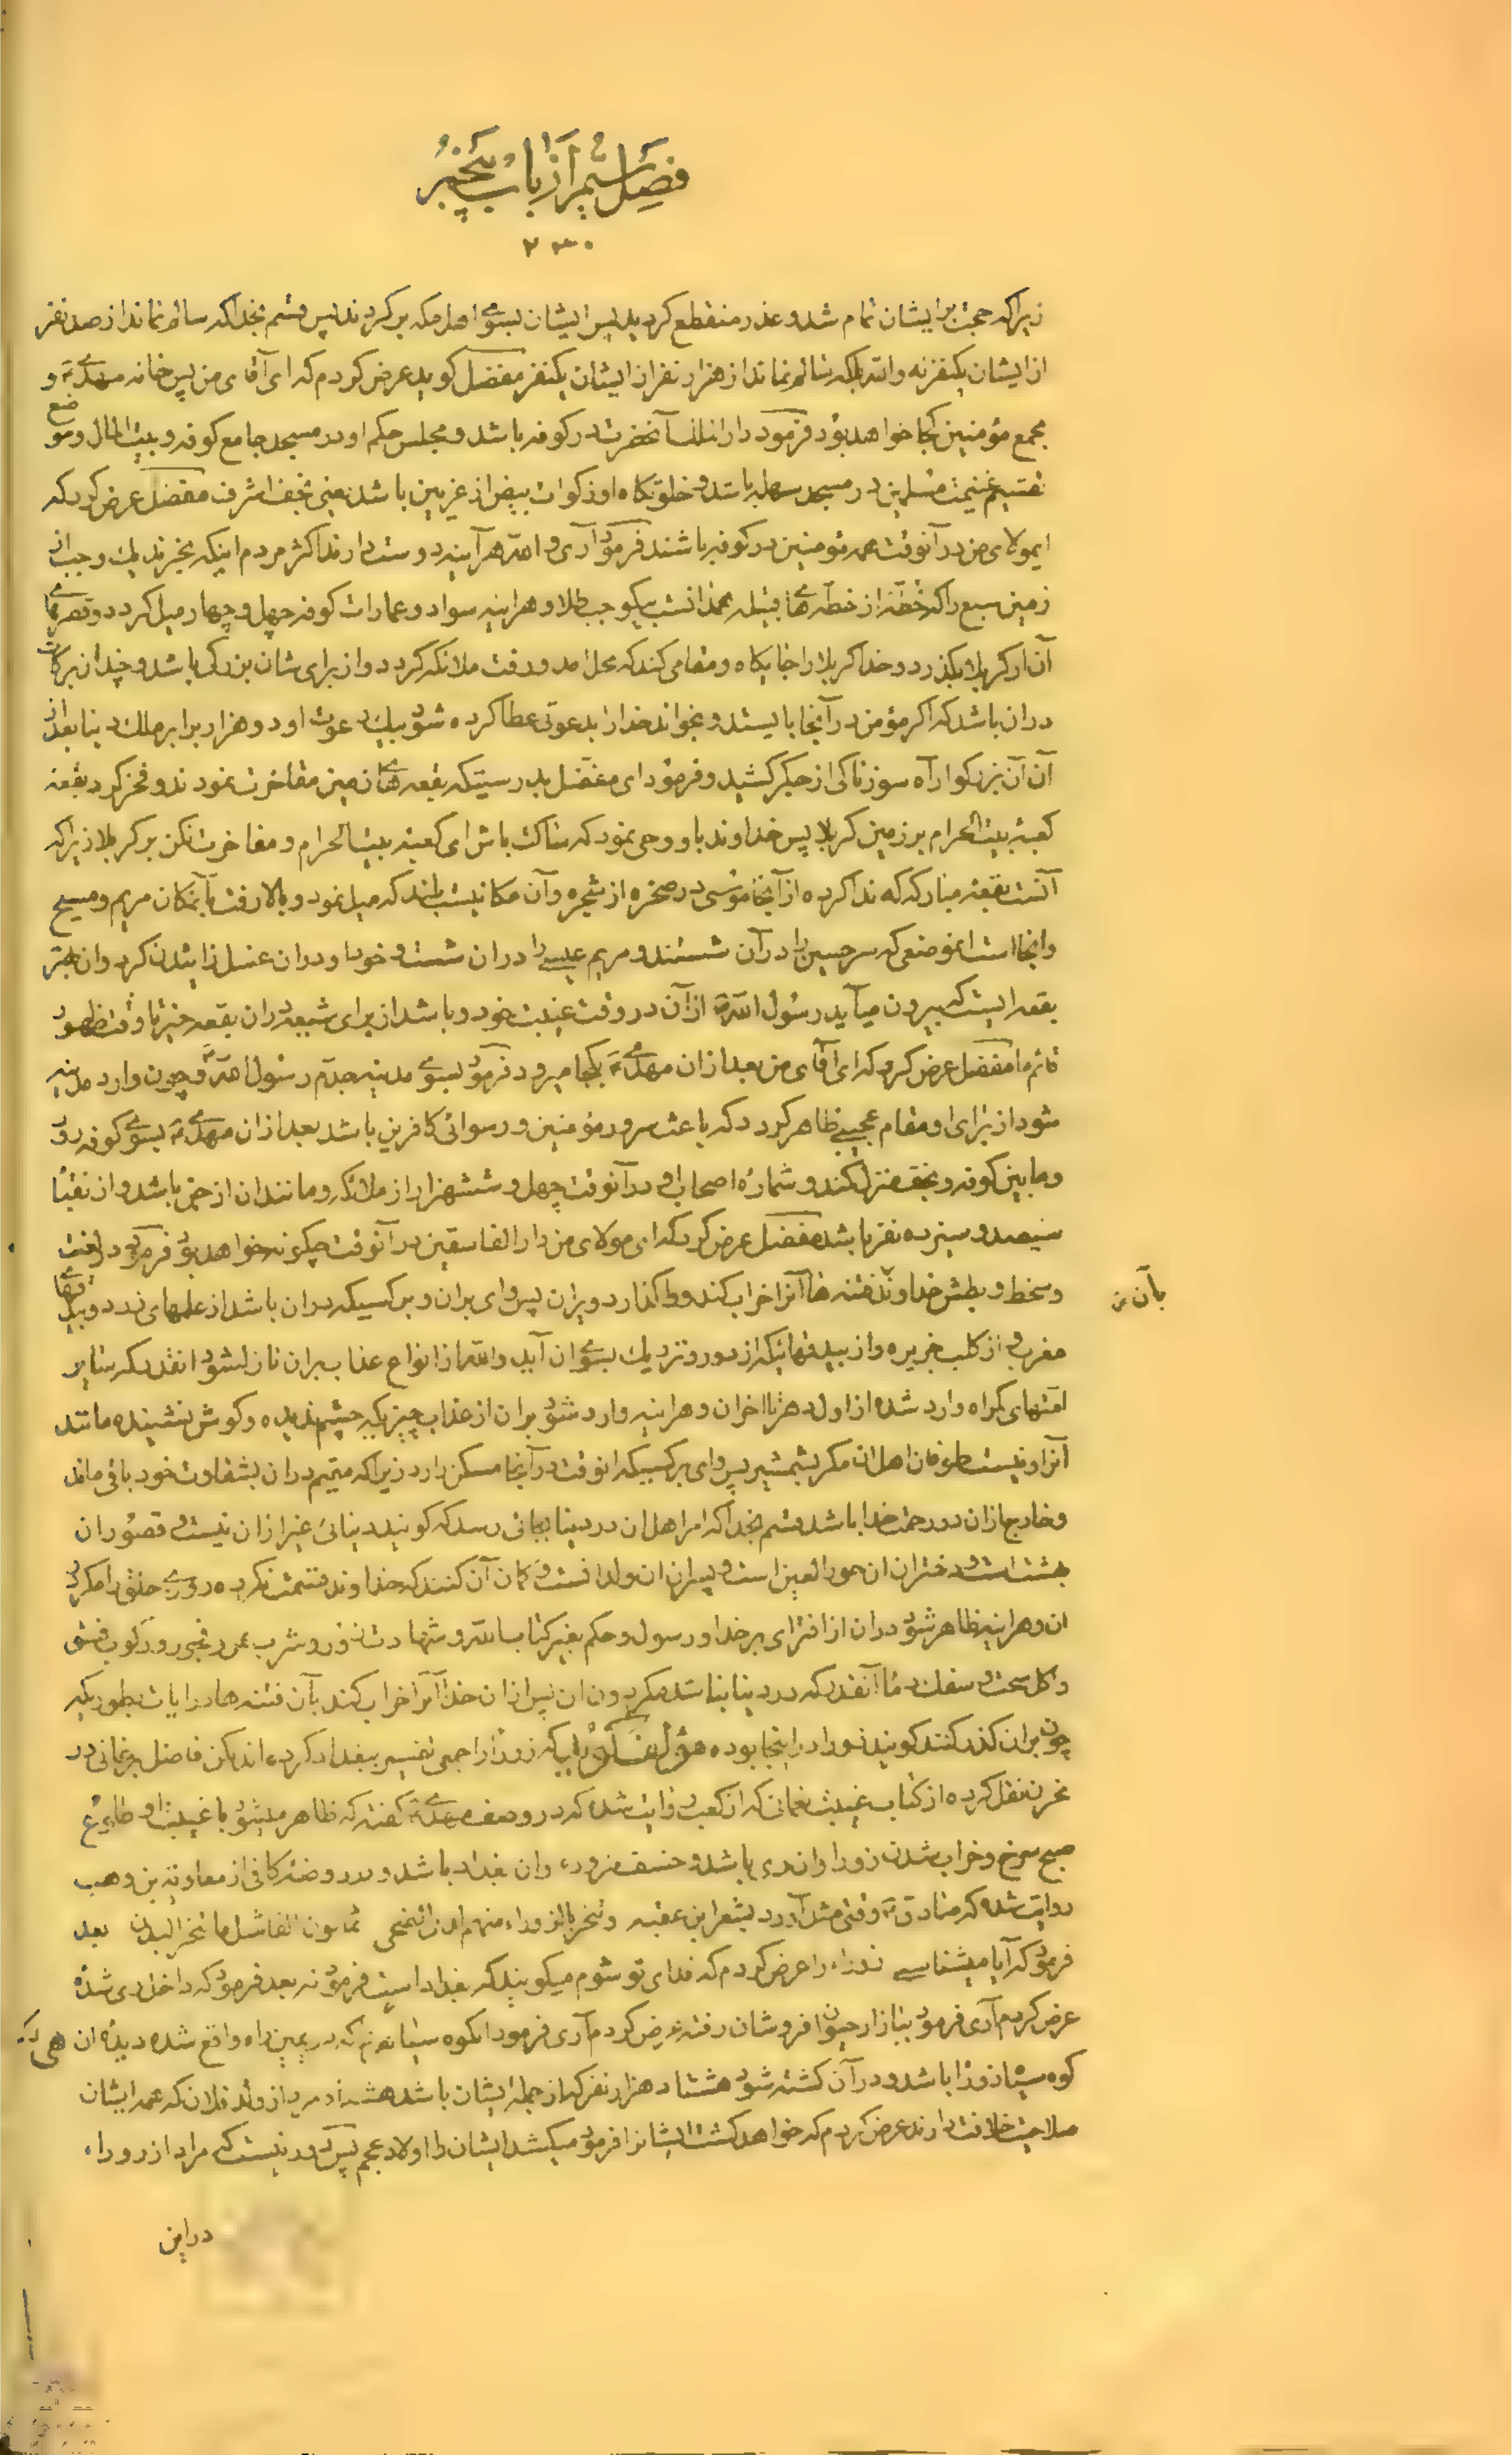 فصل ششم از باب پنجم
۲۳۰
زیراکه حجت برایشان تمام شد و عذر منقطع گردید پس ایشان بسوی اهل مکه برگردند پس قسم بخدا که سالم نماند از صد نفر
از ایشان یکنفر نه والله بلکه سالم نماند از هزار نفر از ایشان یکنفر مفضل گوید عرض کردم که ای آقای من پس خانه مهدی و
مجمع مؤمنین کجا خواهد بود فرمود دار انلنا آنحضرت در کوفه باشد و مجلس حکم او در مسجد جامع کوفه و بیت المال و موضع
تقسیم غنیمت مسلمین در مسجد سهله باشد و خلوتگاه او ذکوات بیض از غریین باشد یعنی نجف اشرف مفضل عرض کرد که
ایمولای من در آنوقت همه مؤمنین در کوفه باشند فرمود آری والله هرآینه دوست دارند اکثر مردم اینکه بخرند یک وجب از
زمین سبع را که خطّه از خطه های قبیله همدانست بیکوجب طلا و هراینه سواد و عمارات کوفه چهل و چهار میل گردد و قصرهای
آن از کربلا بگذرد و خدا کربلا را جایگاه و مقامی کند که محل آمد و رفت ملائکه گردد و از برای شان بزرگی باشد و چندان برکات
دران باشد که اگر مؤمن در آنجا بایستد و بخواند خدا را بدعوتی عطا کرده شود بیک دعوت او دو هزار برابر ملک دنیا بعد از
آن آن بزرگوار آه سوزناکی از جگر کشید و فرمود ای مفضل بدرستیکه بقعه های زمین مفاخرت نمودند و فخر کرد بقعه
کعبه بیت الحرام بر زمین کربلا پس خداوند باو وحی نمود که ساکت باش ای کعبه بیت الحرام و مفاخرت نکن بر کربلا زیراکه
آنست بقعه مبارکه که ندا کرده از آنجا موسی در صخره از شجره وآن مکانیست بلند که میل نمود و بالا رفت بآنمکان مریم و مسیح
وانجا است انموضعی که سر حسین را در آن شستند و مریم عیسی را دران شست و خود او دران غسل زائیدن کرد وان بهتر
بقعه ایست که بیرون میآید رسول الله از آن در وقت غیبت خود و باشد از برای شیعه دران بقعه خیر تا وقت ظهور
قائم ما مفضل عرض کرد که ای آقای من بعد از ان مهدی بکجا میرود فرمود بسوی مدینه جدم رسول الله و چون وارد مدینه
شود از برای او مقام عجیبی ظاهر گردد که باعث سرور مؤمنین و رسوائی کافرین باشد بعد ازان مهدی بسوی کوفه رود
و مابین کوفه و نجف منزل کند و شماره اصحاب او در آنوقت چهل و ششهزار از ملائکه و مانند ان از جن باشد و از نقبا
سیصد و سیزده نفر باشد مفضل عرض کرد که ای مولای من دار الفاسقین در آنوقت چگونه خواهد بود فرمود در لعنت
و سخط و بطش خداوند فتنه ها آنرا خراب کند و واگذارد ویران پس وای بران و بر کسیکه دران باشد از علمهای زرد و بیدقهای
بآن
مغرب و از کلب جزیره و از بیدقهائیکه از دور و نزدیک بسوی ان آید والله از انواع عذاب بران نازل شود انقدر که بسایر
امتهای گمراه وارد شده از اول دهر تا اخر ان و هراینه وارد شود بران از عذاب چیزیکه چشم ندیده و گوش نشنیده مانند
آنرا و نیست طوفان اهل ان مگر بشمشیر پس وای بر کسیکه انوقت در آنجا مسکن دارد زیراکه مقیم دران بشقاوت خود باقی ماند
و خارج ازان در رحمت خدا باشد قسم بخدا که امر اهل ان در دنیا بجائی رسد که گویند دنیائی غیر از ان نیست و قصور ان
بهشت است و دختران ان حور العین است و پسران ان ولدانست و گمان آن کنند که خداوند قسمت نکرده روزی خلق را مگر در
ان و هراینه ظاهر شود دران از افترای بر خدا و رسول و حکم بغیر کتاب الله و شهادت زور و شرب خمر و فجور و رکوب فسق
و اکل سحت و سفک دما آنقدر که در دنیا نباشد مگر دون ان پس ازان خدا آنرا خراب کند بآن فتنه ها و رایات بطوریکه
چون بران گذر کنند گویند زوراء در اینجا بوده مؤلف گوید که زوراء را جمعی تفسیر ببغداد کرده اند لکن فاضل برغانی در
مخزن نقل کرده از کتاب غیبت نعمانی که از کعب روایت شده که در وصف مهدی گفته که ظاهر میشود با غیبت او طلوع
صبح سرخ و خراب شدن زوراء وان ری باشد و خسف مزوره وان بغداد باشد و در روضه کافی از معاویه بن وهب
روایت شده که صادق وقتی مثل آورد بشعر ابن عقبه وتنحر بالزوراء منهم لدی الضحی ثمانون الفا مثل ما تنحر البدن بعد
فرمود که آیا میشناسی زوراء را عرض کردم که فدای تو شوم میگویند که بغداد است فرمود نه بعد فرمود که داخل ری شده
عرض کردم آری فرمود ببازار حیوان فروشان رفته عرض کردم آری فرمود انکوه سیاه که در یمین راه واقع شده دیده ان
کوه سیاه زوراء باشد و در آن کشته شود هشتاد هزار نفر که از جمله ایشان باشد هشتاد مرد از ولد فلان که همه ایشان
صلاحیت خلافت دارند عرض کردم که خواهد کشت ایشانرا فرمود میکشد ایشان را اولاد عجم پس دور نیست که مراد از زوراء
در این